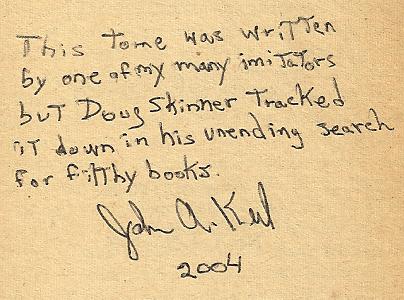 This tome was written
by one of my many imitators
but Doug Skinner Tracked
it down in his unending search
for filthy books.
John A. Keel
2004